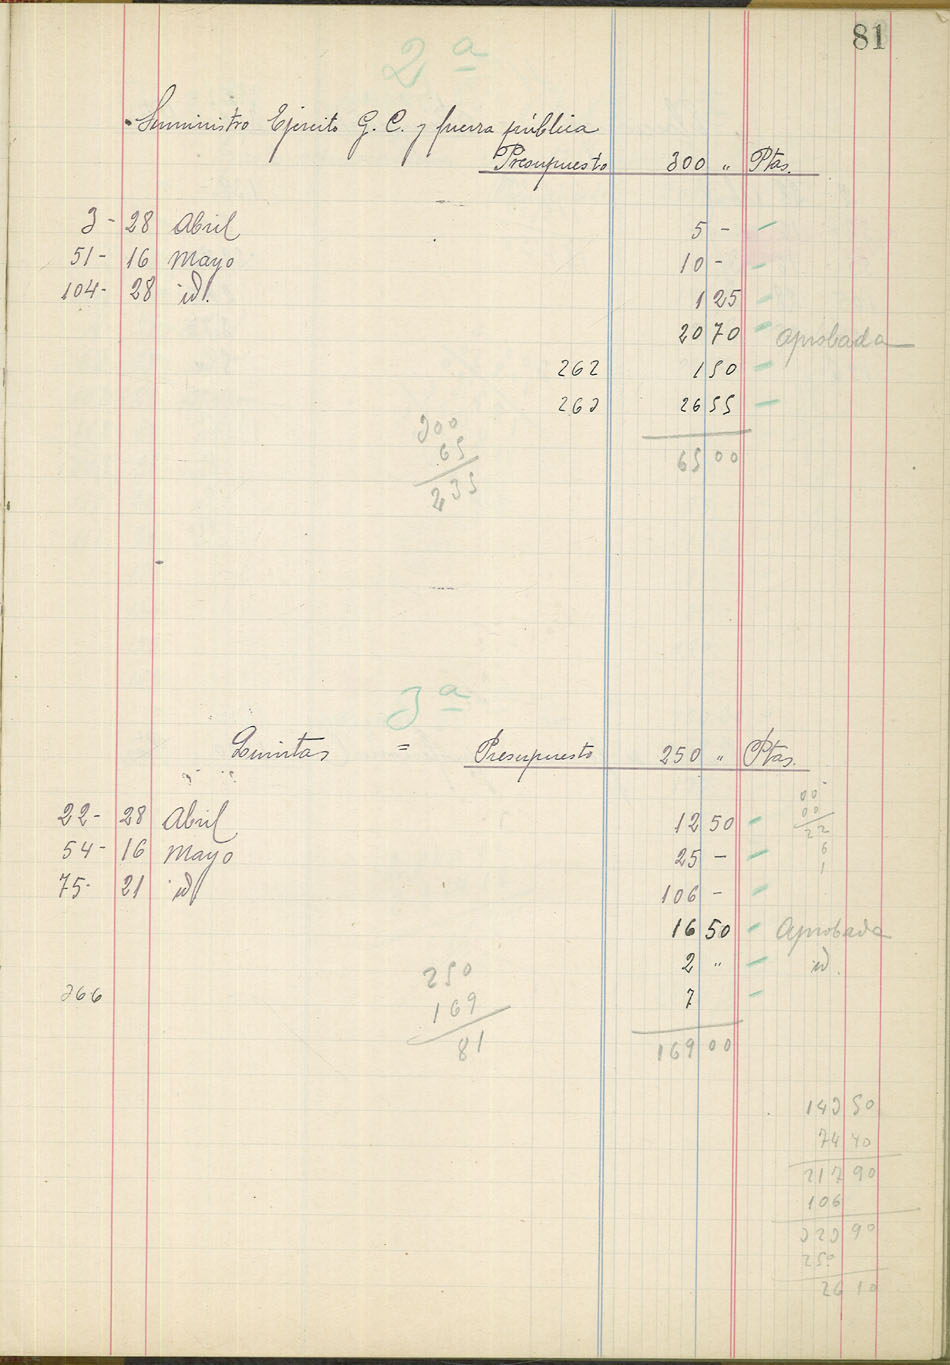 81
2ª
Suministro Ejército G. C. y fuerza pública
Presupuesto 300 " Ptas.
3 - 28 Abril 5 -
51 - 16 Mayo 10 -
104 - 28 id. 1 25
20 70 Aprobada
262 1 50
263 26 55
300
65 00
65
235
3ª
Quintas = Presupuesto 250 " Ptas.
00
00
22
6
1
22 - 28 Abril 12 50
54 - 16 Mayo 25 -
75 - 21 id 106 -
16 50 Aprobada
2 " id.
266 7
250
169
81
169 00
143 50
74 40
217 90
106
323 90
250
26 10